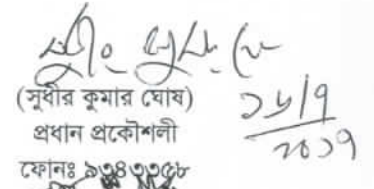 (সুধীর কুমার ঘোষ)
প্রধান প্রকৌশলী
ফোনঃ ৯৩৪৩৩৫৮
১৬/৭
২০১৭